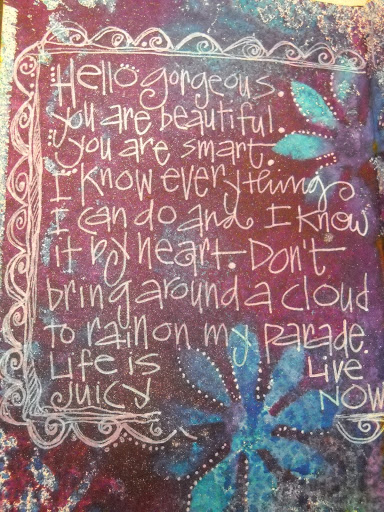 Hello gorgeous.
you are beautiful.
you are smart.
I know everything
I can do and I know
it by heart. Don't
bring around a cloud
to rain on my parade.
Life is Live
JUICY NOW